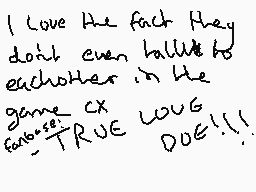 I Love the fact they
don't even talk to
eachother in the
game CX
fanbase:
- TRUE LOVE
DUE!!!